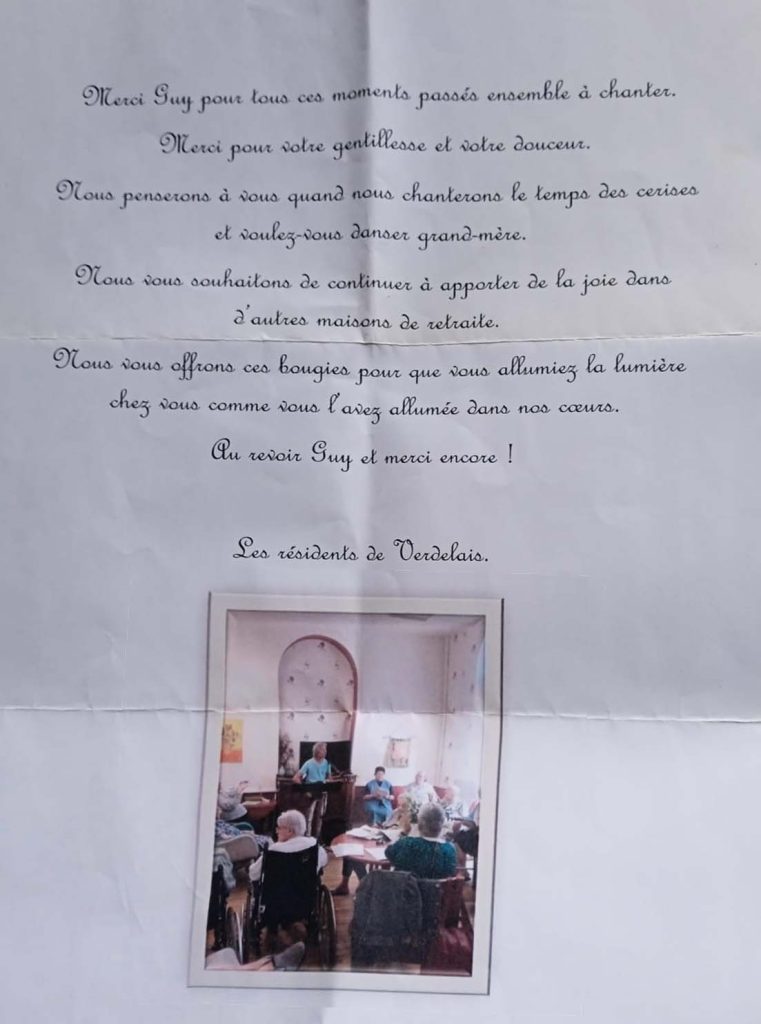 Merci Guy pour tous ces moments passés ensemble à chanter.
Merci pour votre gentillesse et votre douceur.
Nous penserons à vous quand nous chanterons le temps des cerises
et voulez-vous danser grand-mère.
Nous vous souhaitons de continuer à apporter de la joie dans
d'autres maisons de retraite.
Nous vous offrons ces bougies pour que vous allumiez la lumière
chez vous comme vous l'avez allumée dans nos cœurs.
Au revoir Guy et merci encore !
Les résidents de Verdelais.